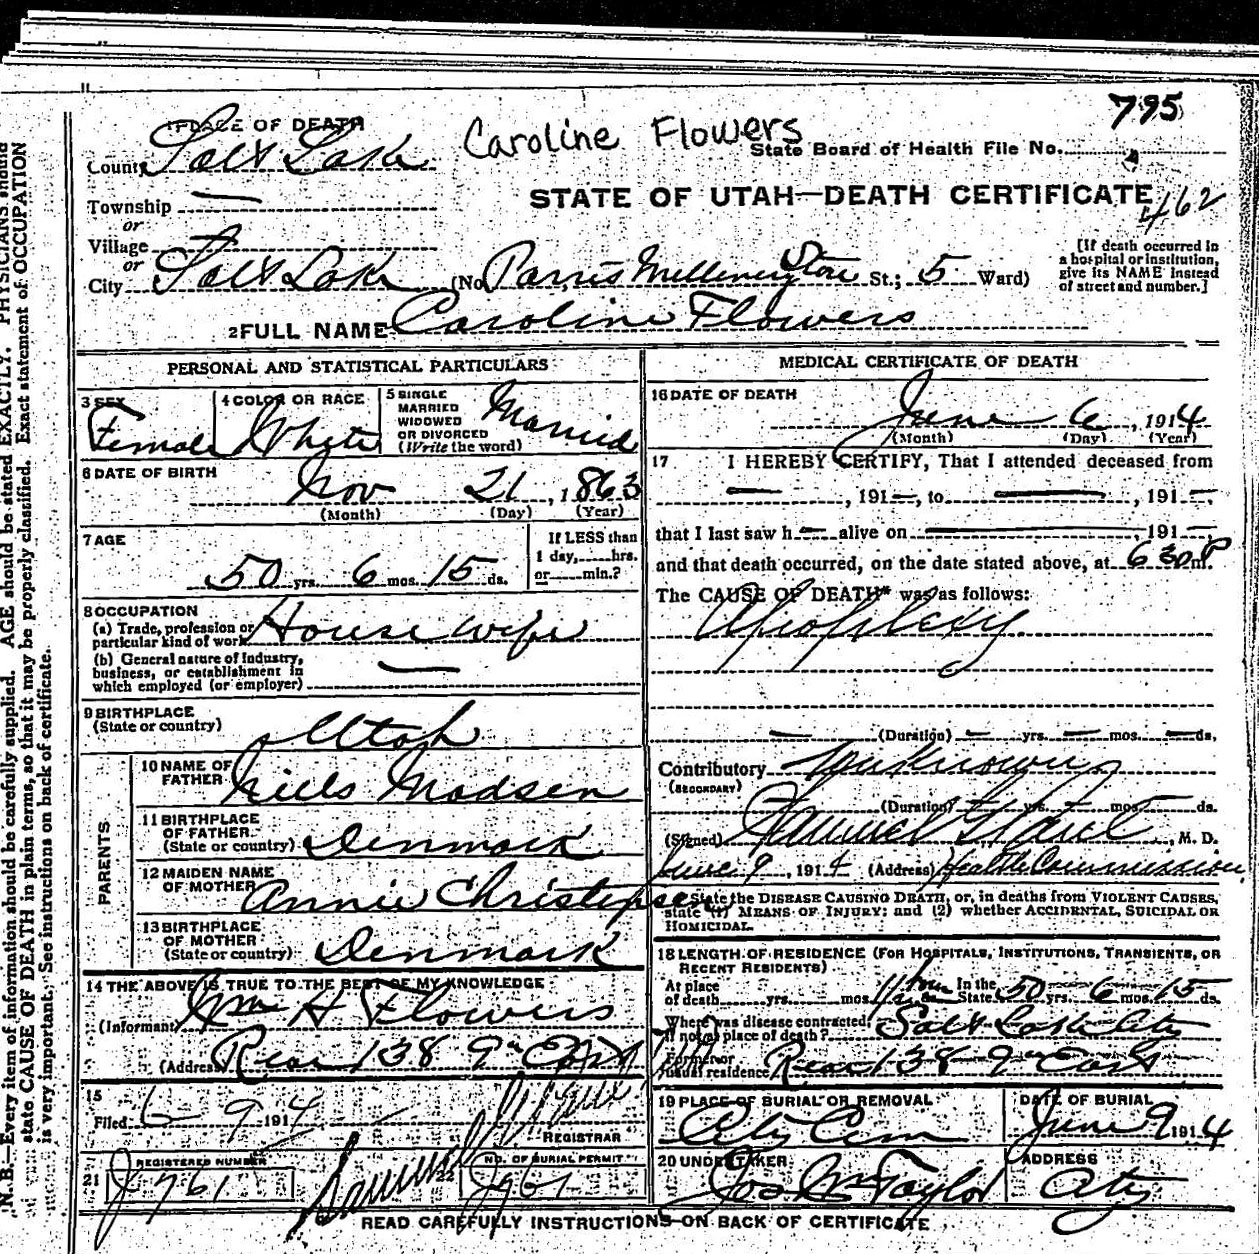 795
1 PLACE OF DEATH
Caroline Flowers
County Salt Lake
State Board of Health File No.
STATE OF UTAH—DEATH CERTIFICATE
462
Township —
or
Village
or
City Salt Lake (No. Parris Millinery Store St.; 5 Ward)
[If death occurred in a hospital or institution, give its NAME instead of street and number.]
2 FULL NAME Caroline Flowers
PERSONAL AND STATISTICAL PARTICULARS
3 SEX Female
4 COLOR OR RACE White
5 SINGLE MARRIED WIDOWED OR DIVORCED (Write the word) Married
6 DATE OF BIRTH
Nov 21, 1863
(Month) (Day) (Year)
7 AGE
50 yrs. 6 mos. 15 ds.
If LESS than 1 day, hrs. or min.?
8 OCCUPATION
(a) Trade, profession or particular kind of work House wife
(b) General nature of industry, business, or establishment in which employed (or employer) —
9 BIRTHPLACE
(State or country) Utah
PARENTS
10 NAME OF FATHER Niels Madsen
11 BIRTHPLACE OF FATHER (State or country) Denmark
12 MAIDEN NAME OF MOTHER Annie Christensen
13 BIRTHPLACE OF MOTHER (State or country) Denmark
14 THE ABOVE IS TRUE TO THE BEST OF MY KNOWLEDGE
(Informant) Wm H Flowers
(Address) Rear 138 9th East
15
Filed 6-9 1914
REGISTRAR
21 REGISTERED NUMBER
J 761
22 NO. OF BURIAL PERMIT
J 761
MEDICAL CERTIFICATE OF DEATH
16 DATE OF DEATH
June 6, 1914
(Month) (Day) (Year)
17 I HEREBY CERTIFY, That I attended deceased from
—, 191—, to —, 191—,
that I last saw h— alive on —, 191—
and that death occurred, on the date stated above, at 630 P m.
The CAUSE OF DEATH* was as follows:
Apoplexy
— (Duration) — yrs. — mos. — ds.
Contributory Unknown
(SECONDARY)
(Duration) — yrs. — mos. — ds.
(Signed) Samuel G Paul, M. D.
June 9, 1914 (Address) Health Commissioner
*State the DISEASE CAUSING DEATH, or, in deaths from VIOLENT CAUSES, state (1) MEANS OF INJURY; and (2) whether ACCIDENTAL, SUICIDAL OR HOMICIDAL.
18 LENGTH OF RESIDENCE (FOR HOSPITALS, INSTITUTIONS, TRANSIENTS, OR RECENT RESIDENTS)
At place of death yrs. mos. ds. In the State 50 yrs. 6 mos. 15 ds.
Where was disease contracted, if not at place of death? Salt Lake City
Former or usual residence Rear 138-9th East
19 PLACE OF BURIAL OR REMOVAL
City Cem
DATE OF BURIAL
June 9 1914
20 UNDERTAKER
Jos Wm Taylor
ADDRESS
City
READ CAREFULLY INSTRUCTIONS ON BACK OF CERTIFICATE
N. B.—Every item of information should be carefully supplied. AGE should be stated EXACTLY. PHYSICIANS should
state CAUSE OF DEATH in plain terms, so that it may be properly classified. Exact statement of OCCUPATION
is very important. See instructions on back of certificate.